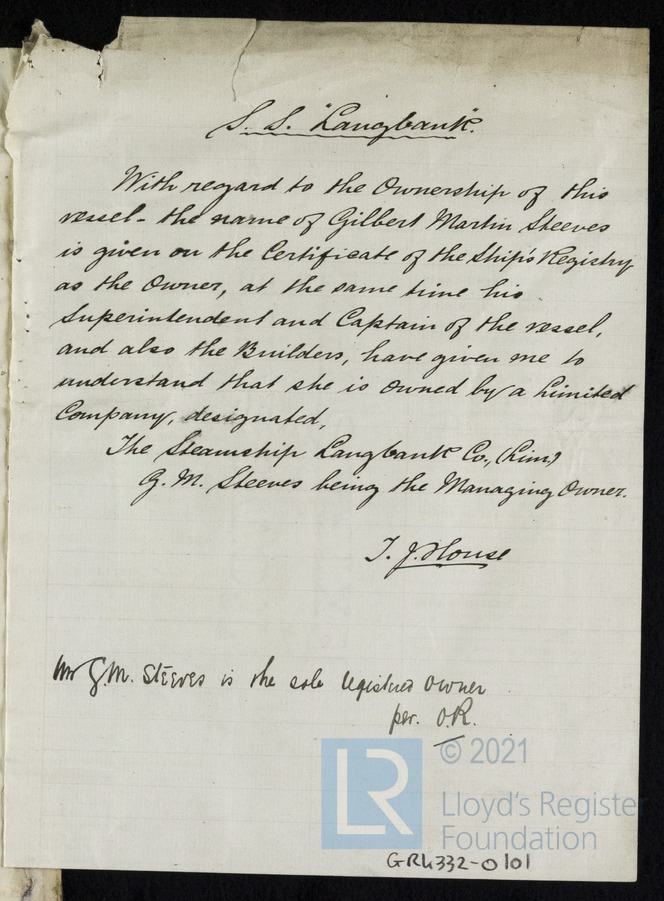 S.S. "Langbank".
With regard to the Ownership of this
vessel - the name of Gilbert Martin Steeves
is given on the Certificate of the Ship's Registry
as the Owner, at the same time his
Superintendent and Captain of the vessel,
and also the Builders, have given me to
understand that she is owned by a Limited
Company, designated,
The Steamship Langbank Co., (Lim)
G. M. Steeves being the Managing Owner.
T. J. House
Mr G.M. Steeves is the sole registered owner
per. O.R.
LR
© 2021
Lloyd's Register
Foundation
GRK332-0101